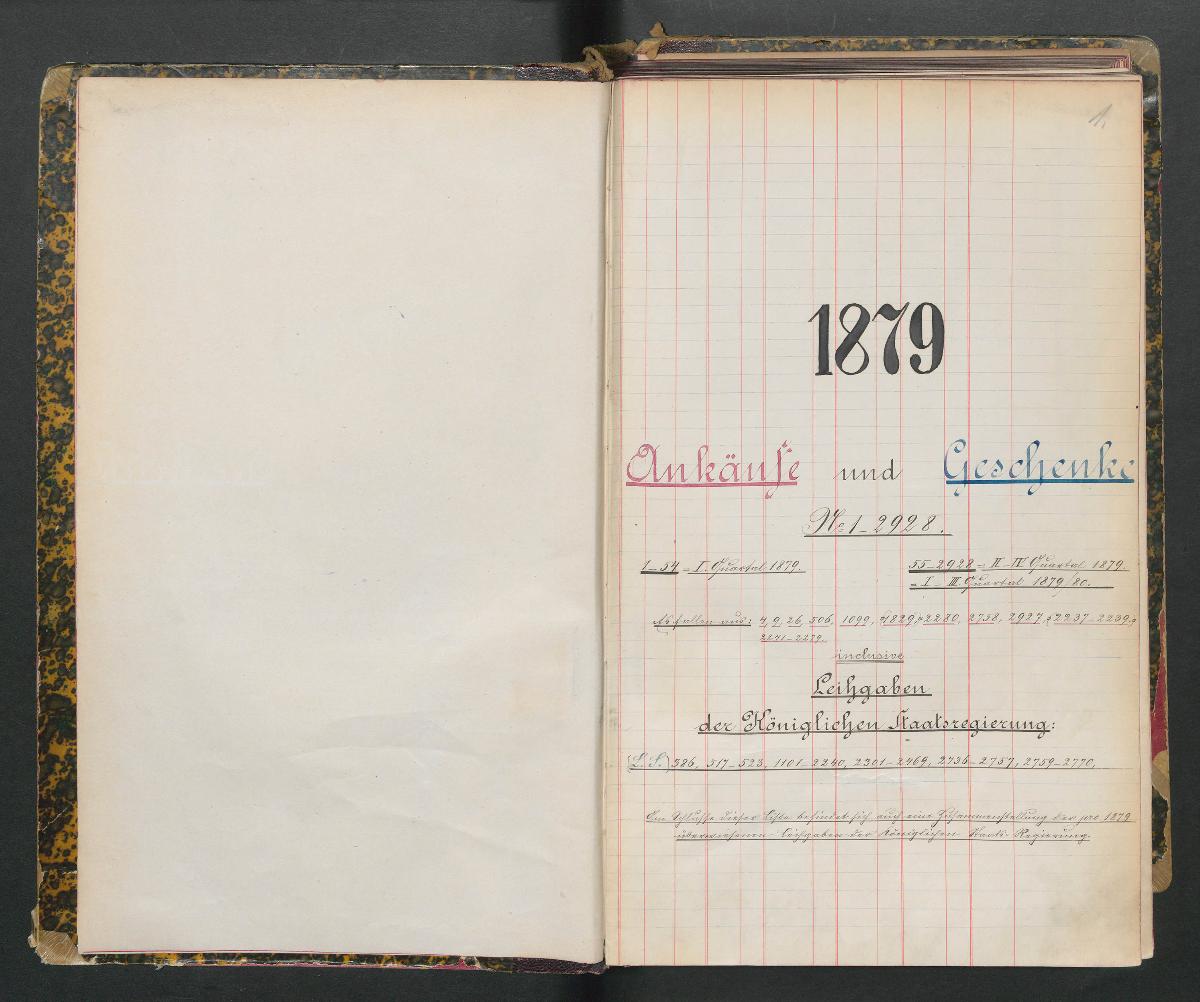 1.
1879
Ankäufe und Geschenke
No 1-2928.
1-54 = I. Quartal 1879.
55-2928 = II-IV Quartal 1879.
= I-III Quartal 1879/80.
Es fallen aus: 4, 9, 26, 506, 1099, 2280, 2758, 2927, 2237-2239,
2241-2279.
inclusive
Leihgaben
der Königlichen Staatsregierung:
(L. S.) 386, 517-523, 1101-2240, 2301-2469, 2736-2757, 2759-2770,
Am Schlusse dieser Liste befindet sich auch eine Zusammenstellung der pro 1879
überwiesenen Leihgaben der Königlichen Staats-Regierung.